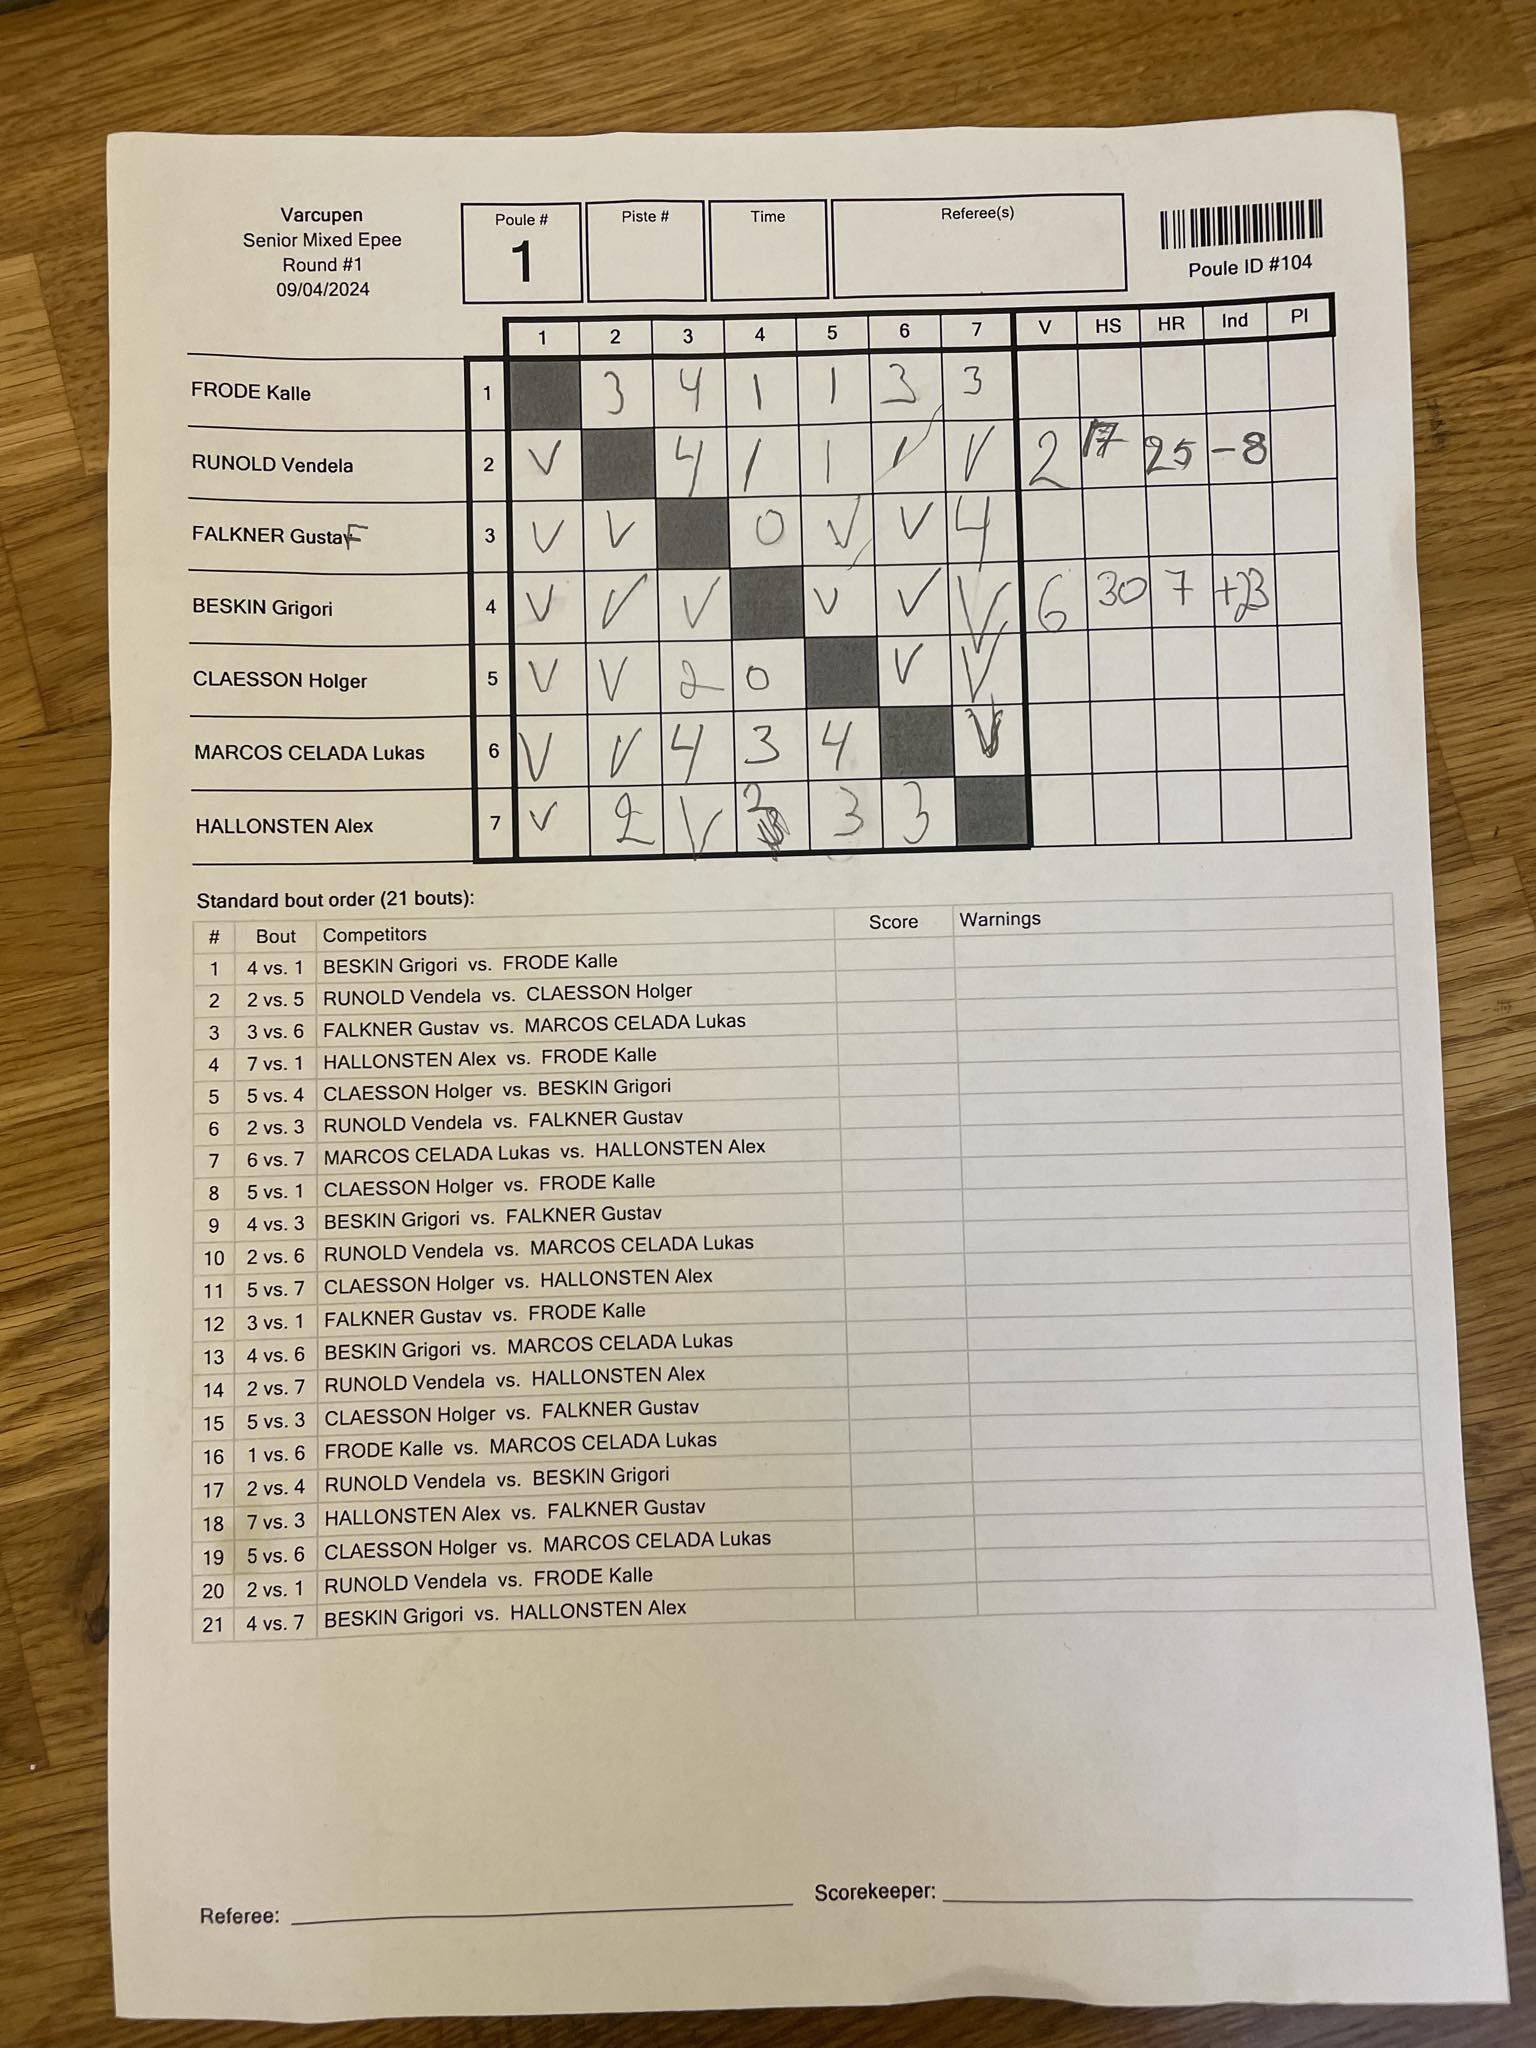 Varcupen
Senior Mixed Epee
Round #1
09/04/2024
Poule #
1
Piste #
Time
Referee(s)
Poule ID #104
1 2 3 4 5 6 7 V HS HR Ind Pl
FRODE Kalle 1 3 4 1 1 3 3
RUNOLD Vendela 2 V 4 1 1 1 V 2 17 25 -8
FALKNER Gustaf 3 V V 0 V V 4
BESKIN Grigori 4 V V V V V V 6 30 7 +23
CLAESSON Holger 5 V V 2 0 V V
MARCOS CELADA Lukas 6 V V 4 3 4 V
HALLONSTEN Alex 7 V 2 V 2 3 3
Standard bout order (21 bouts):
# Bout Competitors Score Warnings
1 4 vs. 1 BESKIN Grigori vs. FRODE Kalle
2 2 vs. 5 RUNOLD Vendela vs. CLAESSON Holger
3 3 vs. 6 FALKNER Gustav vs. MARCOS CELADA Lukas
4 7 vs. 1 HALLONSTEN Alex vs. FRODE Kalle
5 5 vs. 4 CLAESSON Holger vs. BESKIN Grigori
6 2 vs. 3 RUNOLD Vendela vs. FALKNER Gustav
7 6 vs. 7 MARCOS CELADA Lukas vs. HALLONSTEN Alex
8 5 vs. 1 CLAESSON Holger vs. FRODE Kalle
9 4 vs. 3 BESKIN Grigori vs. FALKNER Gustav
10 2 vs. 6 RUNOLD Vendela vs. MARCOS CELADA Lukas
11 5 vs. 7 CLAESSON Holger vs. HALLONSTEN Alex
12 3 vs. 1 FALKNER Gustav vs. FRODE Kalle
13 4 vs. 6 BESKIN Grigori vs. MARCOS CELADA Lukas
14 2 vs. 7 RUNOLD Vendela vs. HALLONSTEN Alex
15 5 vs. 3 CLAESSON Holger vs. FALKNER Gustav
16 1 vs. 6 FRODE Kalle vs. MARCOS CELADA Lukas
17 2 vs. 4 RUNOLD Vendela vs. BESKIN Grigori
18 7 vs. 3 HALLONSTEN Alex vs. FALKNER Gustav
19 5 vs. 6 CLAESSON Holger vs. MARCOS CELADA Lukas
20 2 vs. 1 RUNOLD Vendela vs. FRODE Kalle
21 4 vs. 7 BESKIN Grigori vs. HALLONSTEN Alex
Referee:
Scorekeeper: